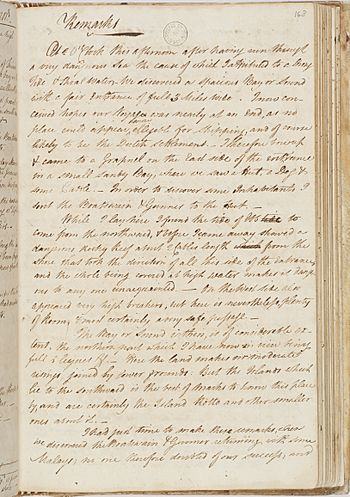 163
Remarks
At 2 o'Clock this afternoon after having run through
a very dang.ous Sea the cause of which I attributed to a strong
Tide & Shoal Water We discovered a spacious Bay or Sound
with a fair entrance of full 3 Miles wide. I now con
ceived hopes our Voyage was nearly at an end, as no
place could appear more eligible for shipping, and of course
likely to be the Dutch settlement. I therefore bore up
& came to a Grapnel on the East side of the entrance
in a small Sandy Bay, where we saw a Hut, a Dog &
some Cattle. In order to discover some Inhabitants I
sent the Boatswain & Gunner to the Hut.
While I lay here I found the tide of
come from the northward, & before I came away showed a
dangerous rocky Reef about Cables length from the
shore that took the direction of all this side of the entrance,
and the whole being covered at high water makes it dang.ous
to any one unacquainted On the West side also
appeared very high breakers, but here is nevertheless plenty
of Room, & most certainly a very safe passage.
The Bay or Sound is then, is of considerable ex
tent, the northern part which I have now in view being
full 5 leagues off. Here the land makes in moderate
risings joined by lower grounds. But the Islands which
lie to the southward is the best of marks to know this place
by, and are certainly the Island Rotte and other smaller
ones about it.
I had just time to make these remarks, when
we discovered the Boatswain & Gunner returning with some
Malays; no one therefore doubted of our success; and